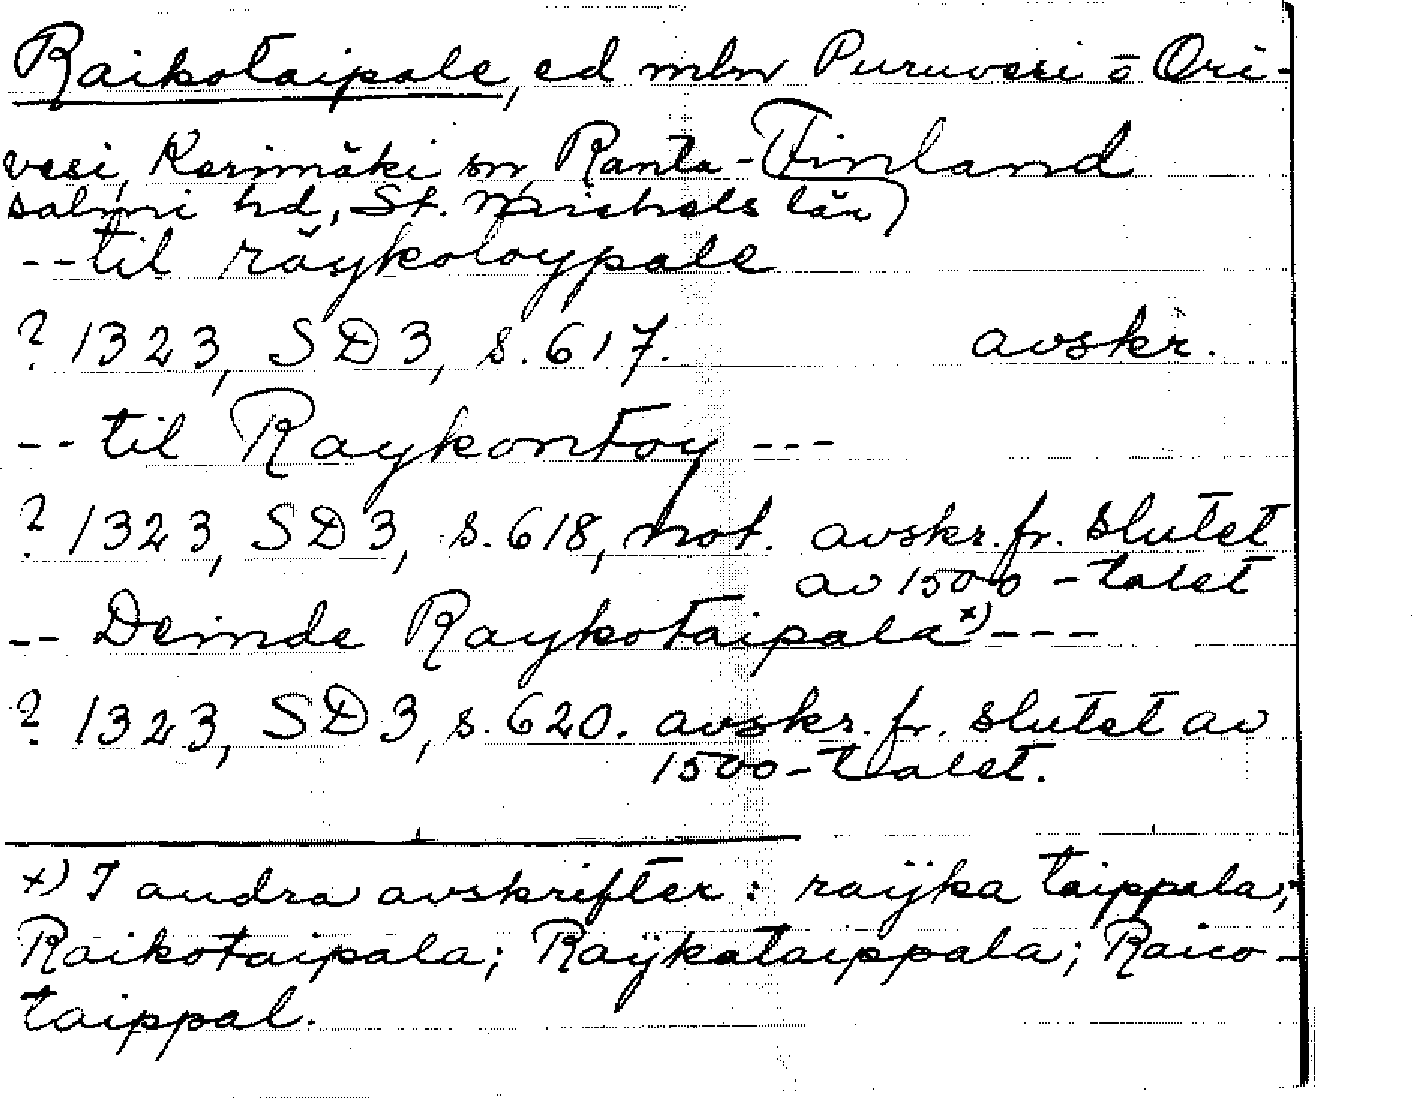 Raikotaipale, ed mlm Puruvesi o Ori-
vesi, Kerimäki sn, Ranta-
Finland
salmi hd, St. Michels län)
--til räykoloypale
? 1323, SD3, s. 617. avskr.
-- til Raykontoy ---
? 1323, SD3, s. 618, not. avskr. fr. slutet
av 1500-talet
-- Deinde Raykotaipala x) ---
? 1323, SD3, s. 620. avskr. fr. slutet av
1500-talet.
x) I andra avskrifter: raÿka taippala;
Raikotaipala; Raÿkataippala; Raico-
taippal.